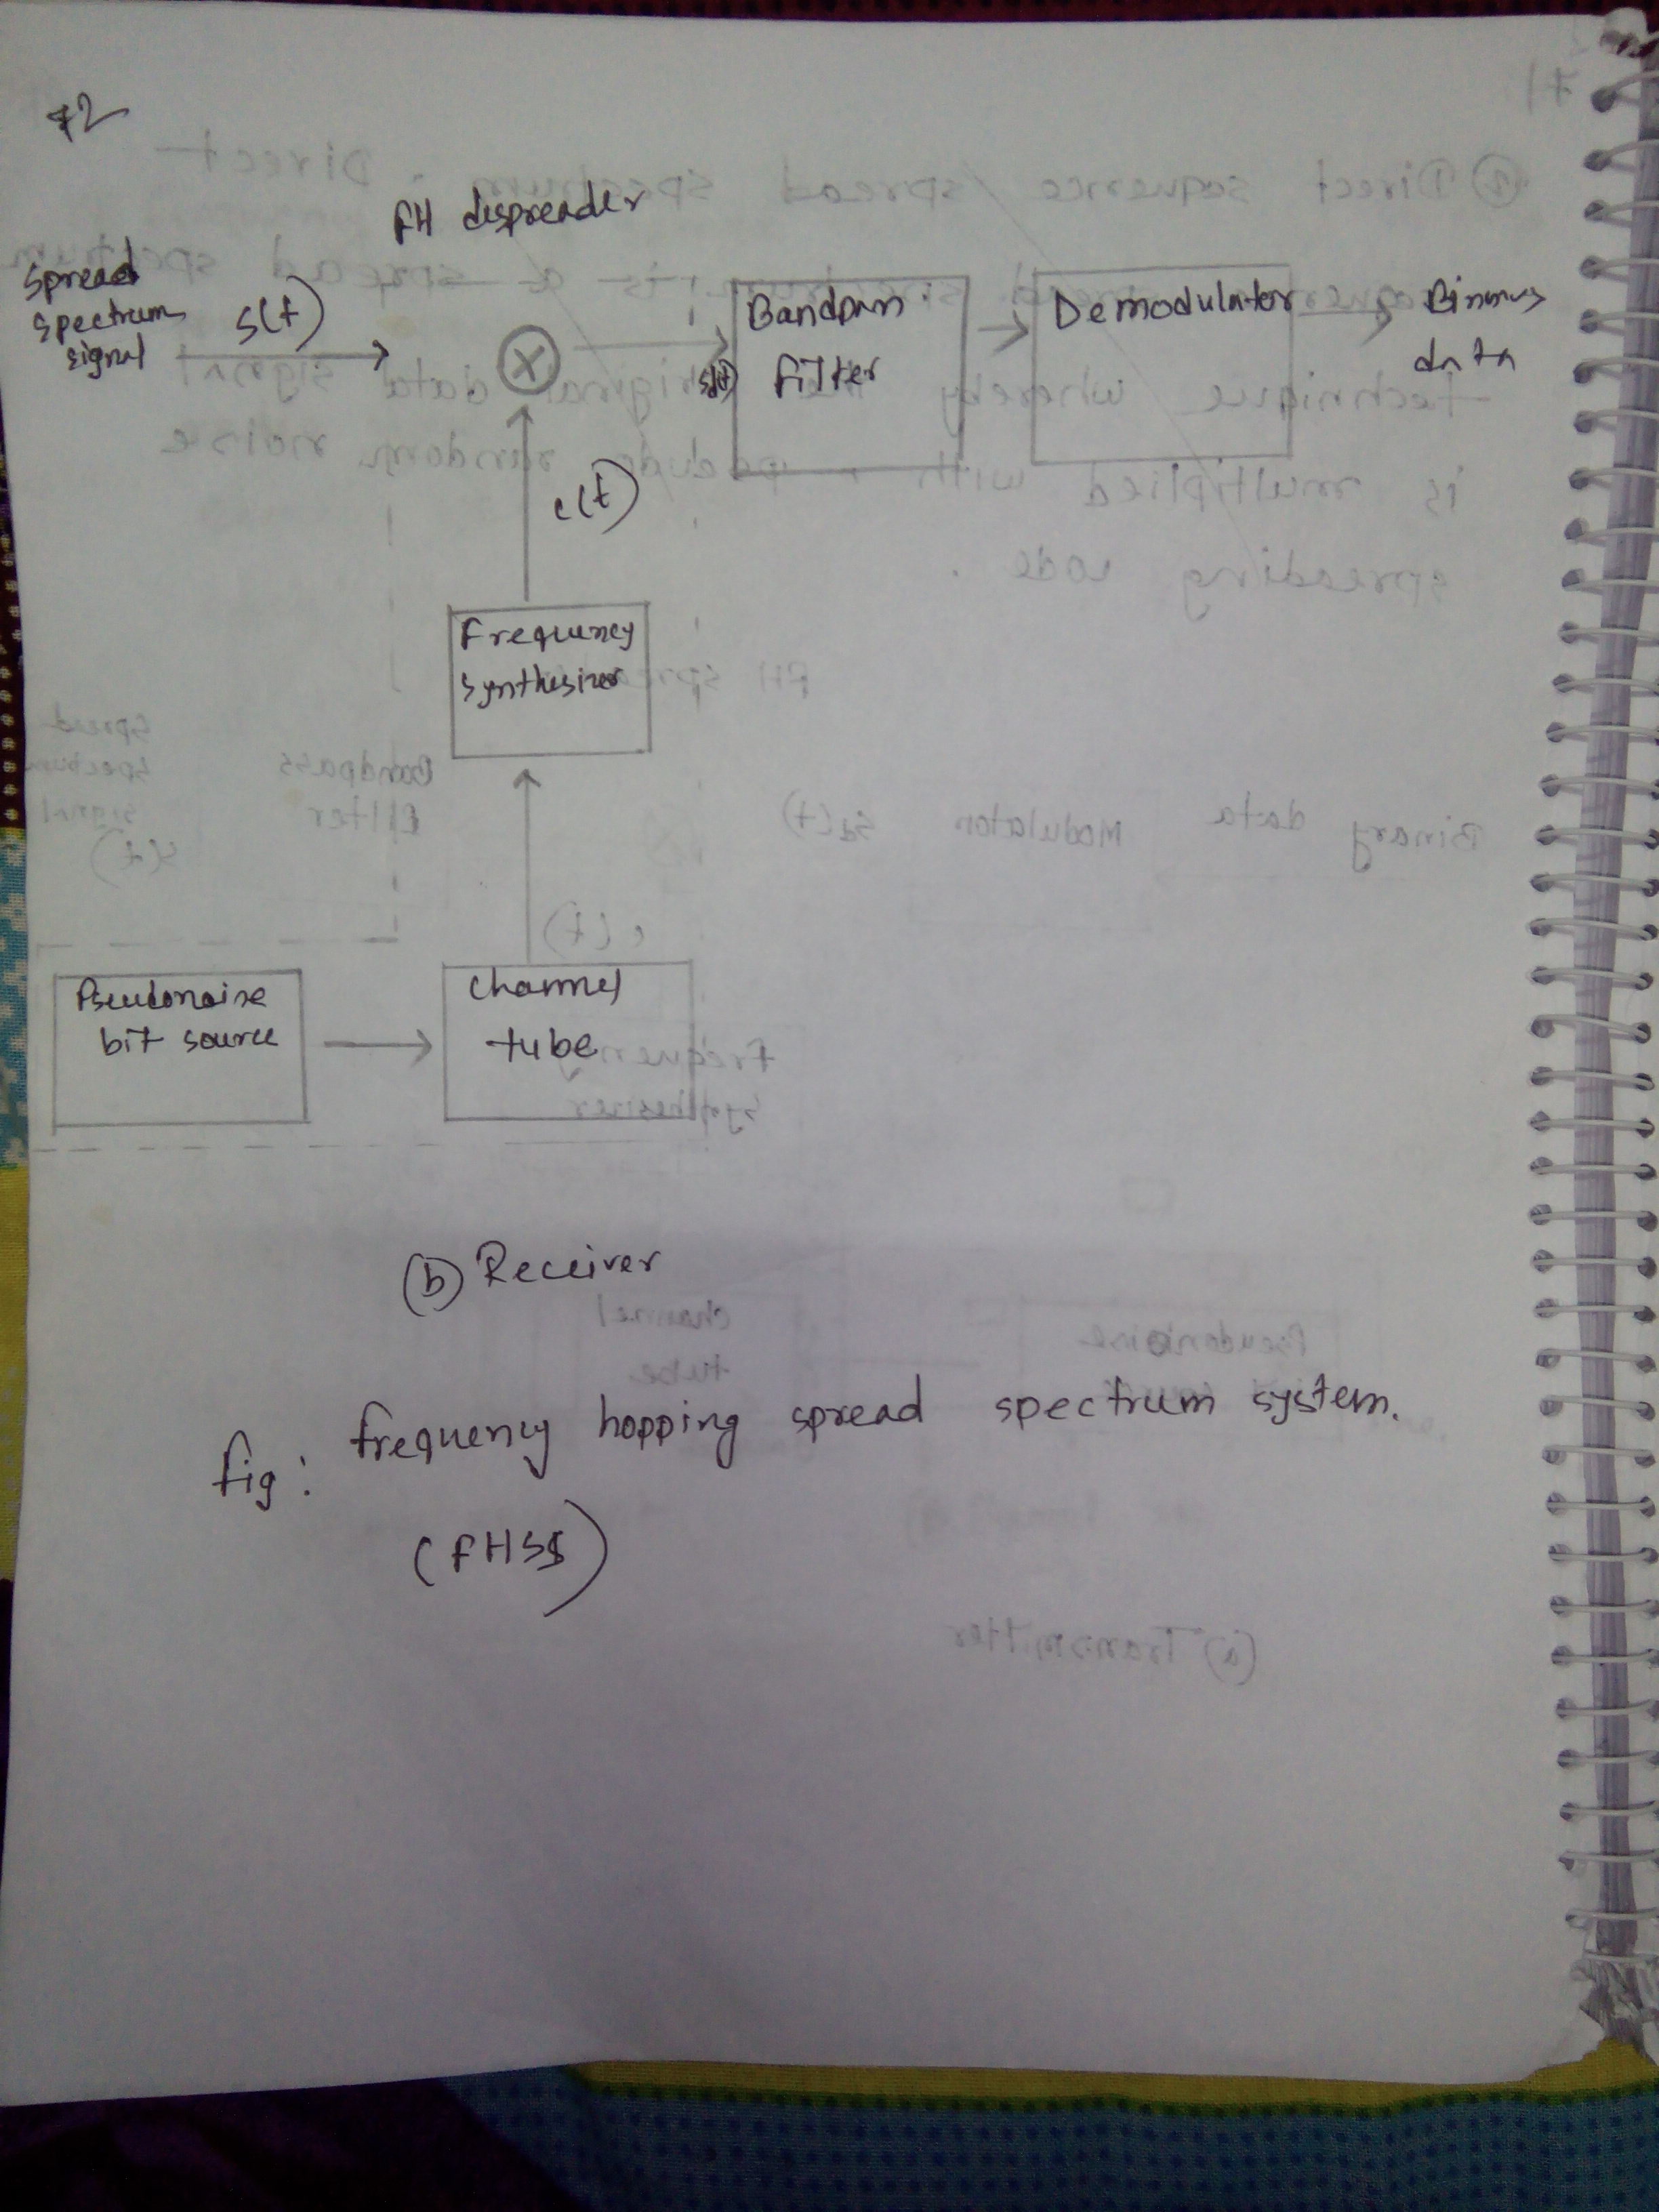 72
FH despreader
Spread
spectrum
signal
s(t)
Bandpass
filter
s(t)
Demodulator
Binary
data
c(t)
Frequency
synthesizer
Pseudonoise
bit source
channel
tube
(b) Receiver
fig: frequency hopping spread spectrum system.
(FHSS)